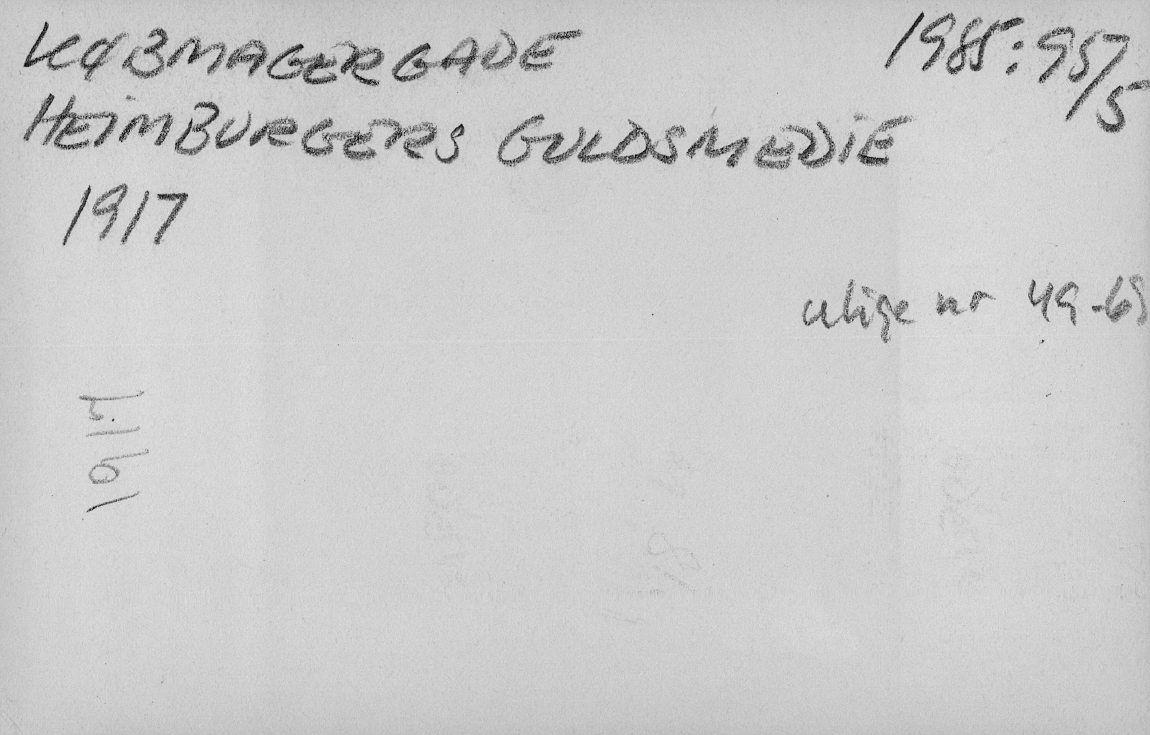 KØBMAGERGADE
1985:957/5
HEIMBURGERS GULDSMEDIE
1917
ulige nr 49-
1917